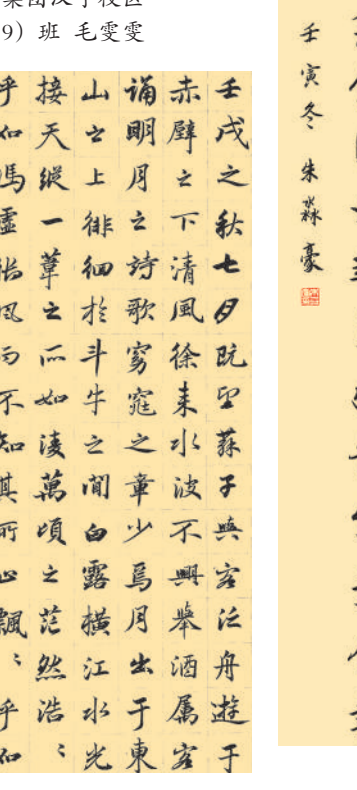 9）班 毛雯雯
壬戌之秋七月既望蘇子與客泛舟遊于
赤壁之下清風徐来水波不興舉酒属客
誦明月之詩歌窈窕之章少焉月出于東
山之上徘徊於斗牛之間白露横江水光
接天縱一葦之所如凌萬頃之茫然浩〻
乎如馮虛御風而不知其所止飄〻乎如
壬寅冬 朱淼豪